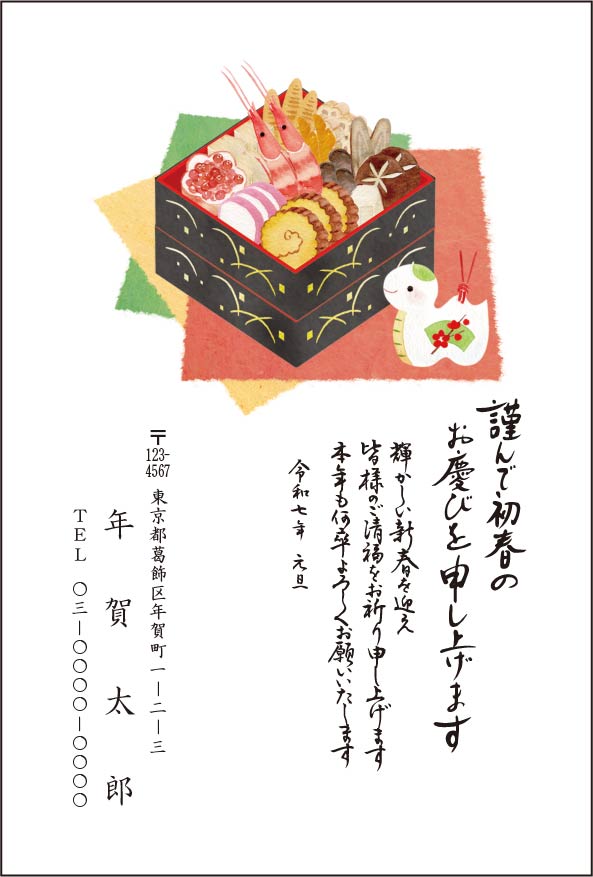 謹んで初春の
お慶びを申し上げます
輝かしい新春を迎え
皆様のご清福をお祈り申し上げます
本年も何卒よろしくお願いいたします
令和七年 元旦
〒123-4567
東京都葛飾区年賀町一ー二ー三
年賀太郎
TEL 〇三ー〇〇〇〇ー〇〇〇〇